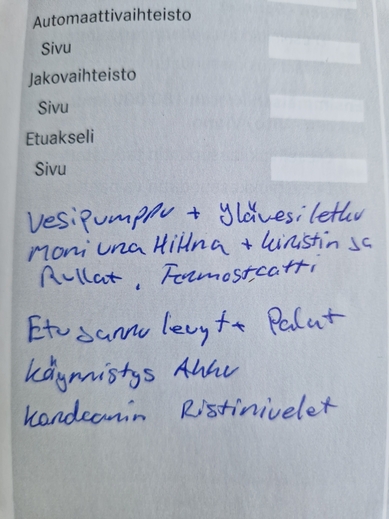 Automaattivaihteisto
Sivu
Jakovaihteisto
Sivu
Etuakseli
Sivu
Vesipumppu + Ylävesiletku
moniuraHihna + kiristin ja
Rullat, Termostaatti
Etujarru levyt + Palat
Käynnistys Akku
kardaanin Ristinivelet